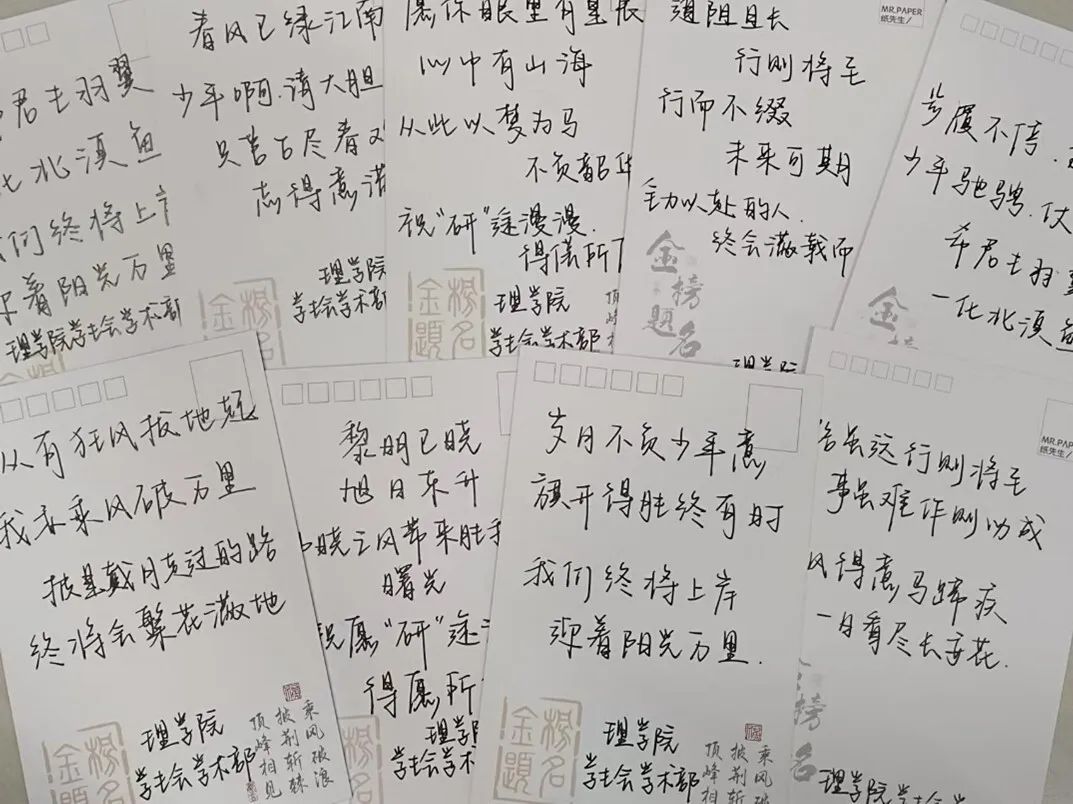 君生羽翼
化北溟鱼
我们终将上岸
迎着阳光万里
理学院学生会学术部
春风已绿江南
少年啊.请大胆
只管占尽春
志得意满
理学院
学生会学术部
金榜
题名
愿你眼里有星辰
心中有山海
从此以梦为马
不负韶华
祝“研”途漫漫.
得偿所
理学院
学生会学术部
金榜
题名
道阻且长
行则将至
行而不缀
未来可期
全力以赴的人.
终会满载而
MR.PAPER
纸先生/
金榜
题名
理学院
步履不停.
少年驰骋.仗
希君生羽翼
一化北溟鱼
金榜
从有狂风拔地起
我亦乘风破万里
披星戴月走过的路
终将会繁花满地
理学院
学生会学术部
金榜
题名
乘风破浪
披荆斩棘
顶峰相见
黎明已晓
旭日东升
晓之风带来胜
曙光
祝愿“研”途
得愿所
理学院
学生会学术
岁月不负少年意
旗开得胜终有时
我们终将上岸
迎着阳光万里.
理学院
学生会学术部
金榜
题名
乘风破
披荆斩
顶峰相
MR.PAPER
纸先生/
路虽远行则将至
事虽难作则必成
风得意马蹄疾
一日看尽长安花.
榜
名
理学院学生会